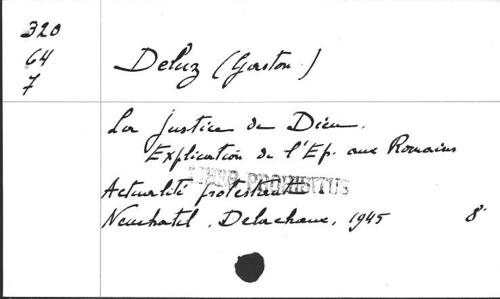 320
64
7
Deluz (Gaston)
La justice de Dieu.
Explication de l'Ep. aux Romains
LIBER PROHIBITUS
Actualité protestante
Neuchatel, Delachaux, 1945 8°